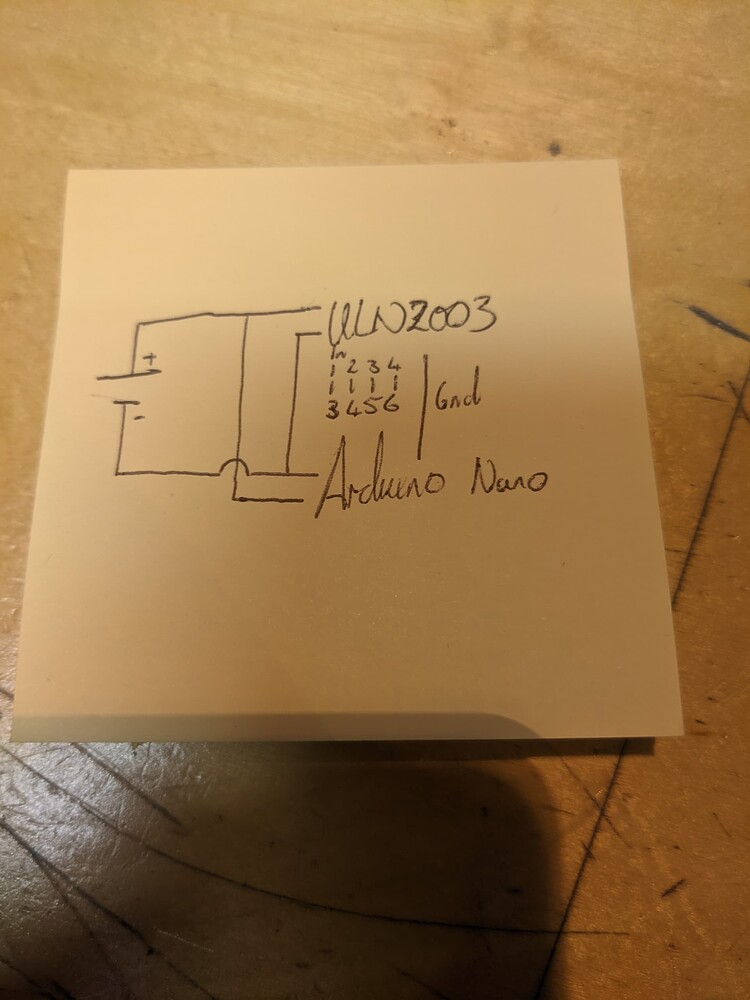 +
ULN2003
In
1 2 3 4
3 4 5 6
Gnd
-
Arduino Nano